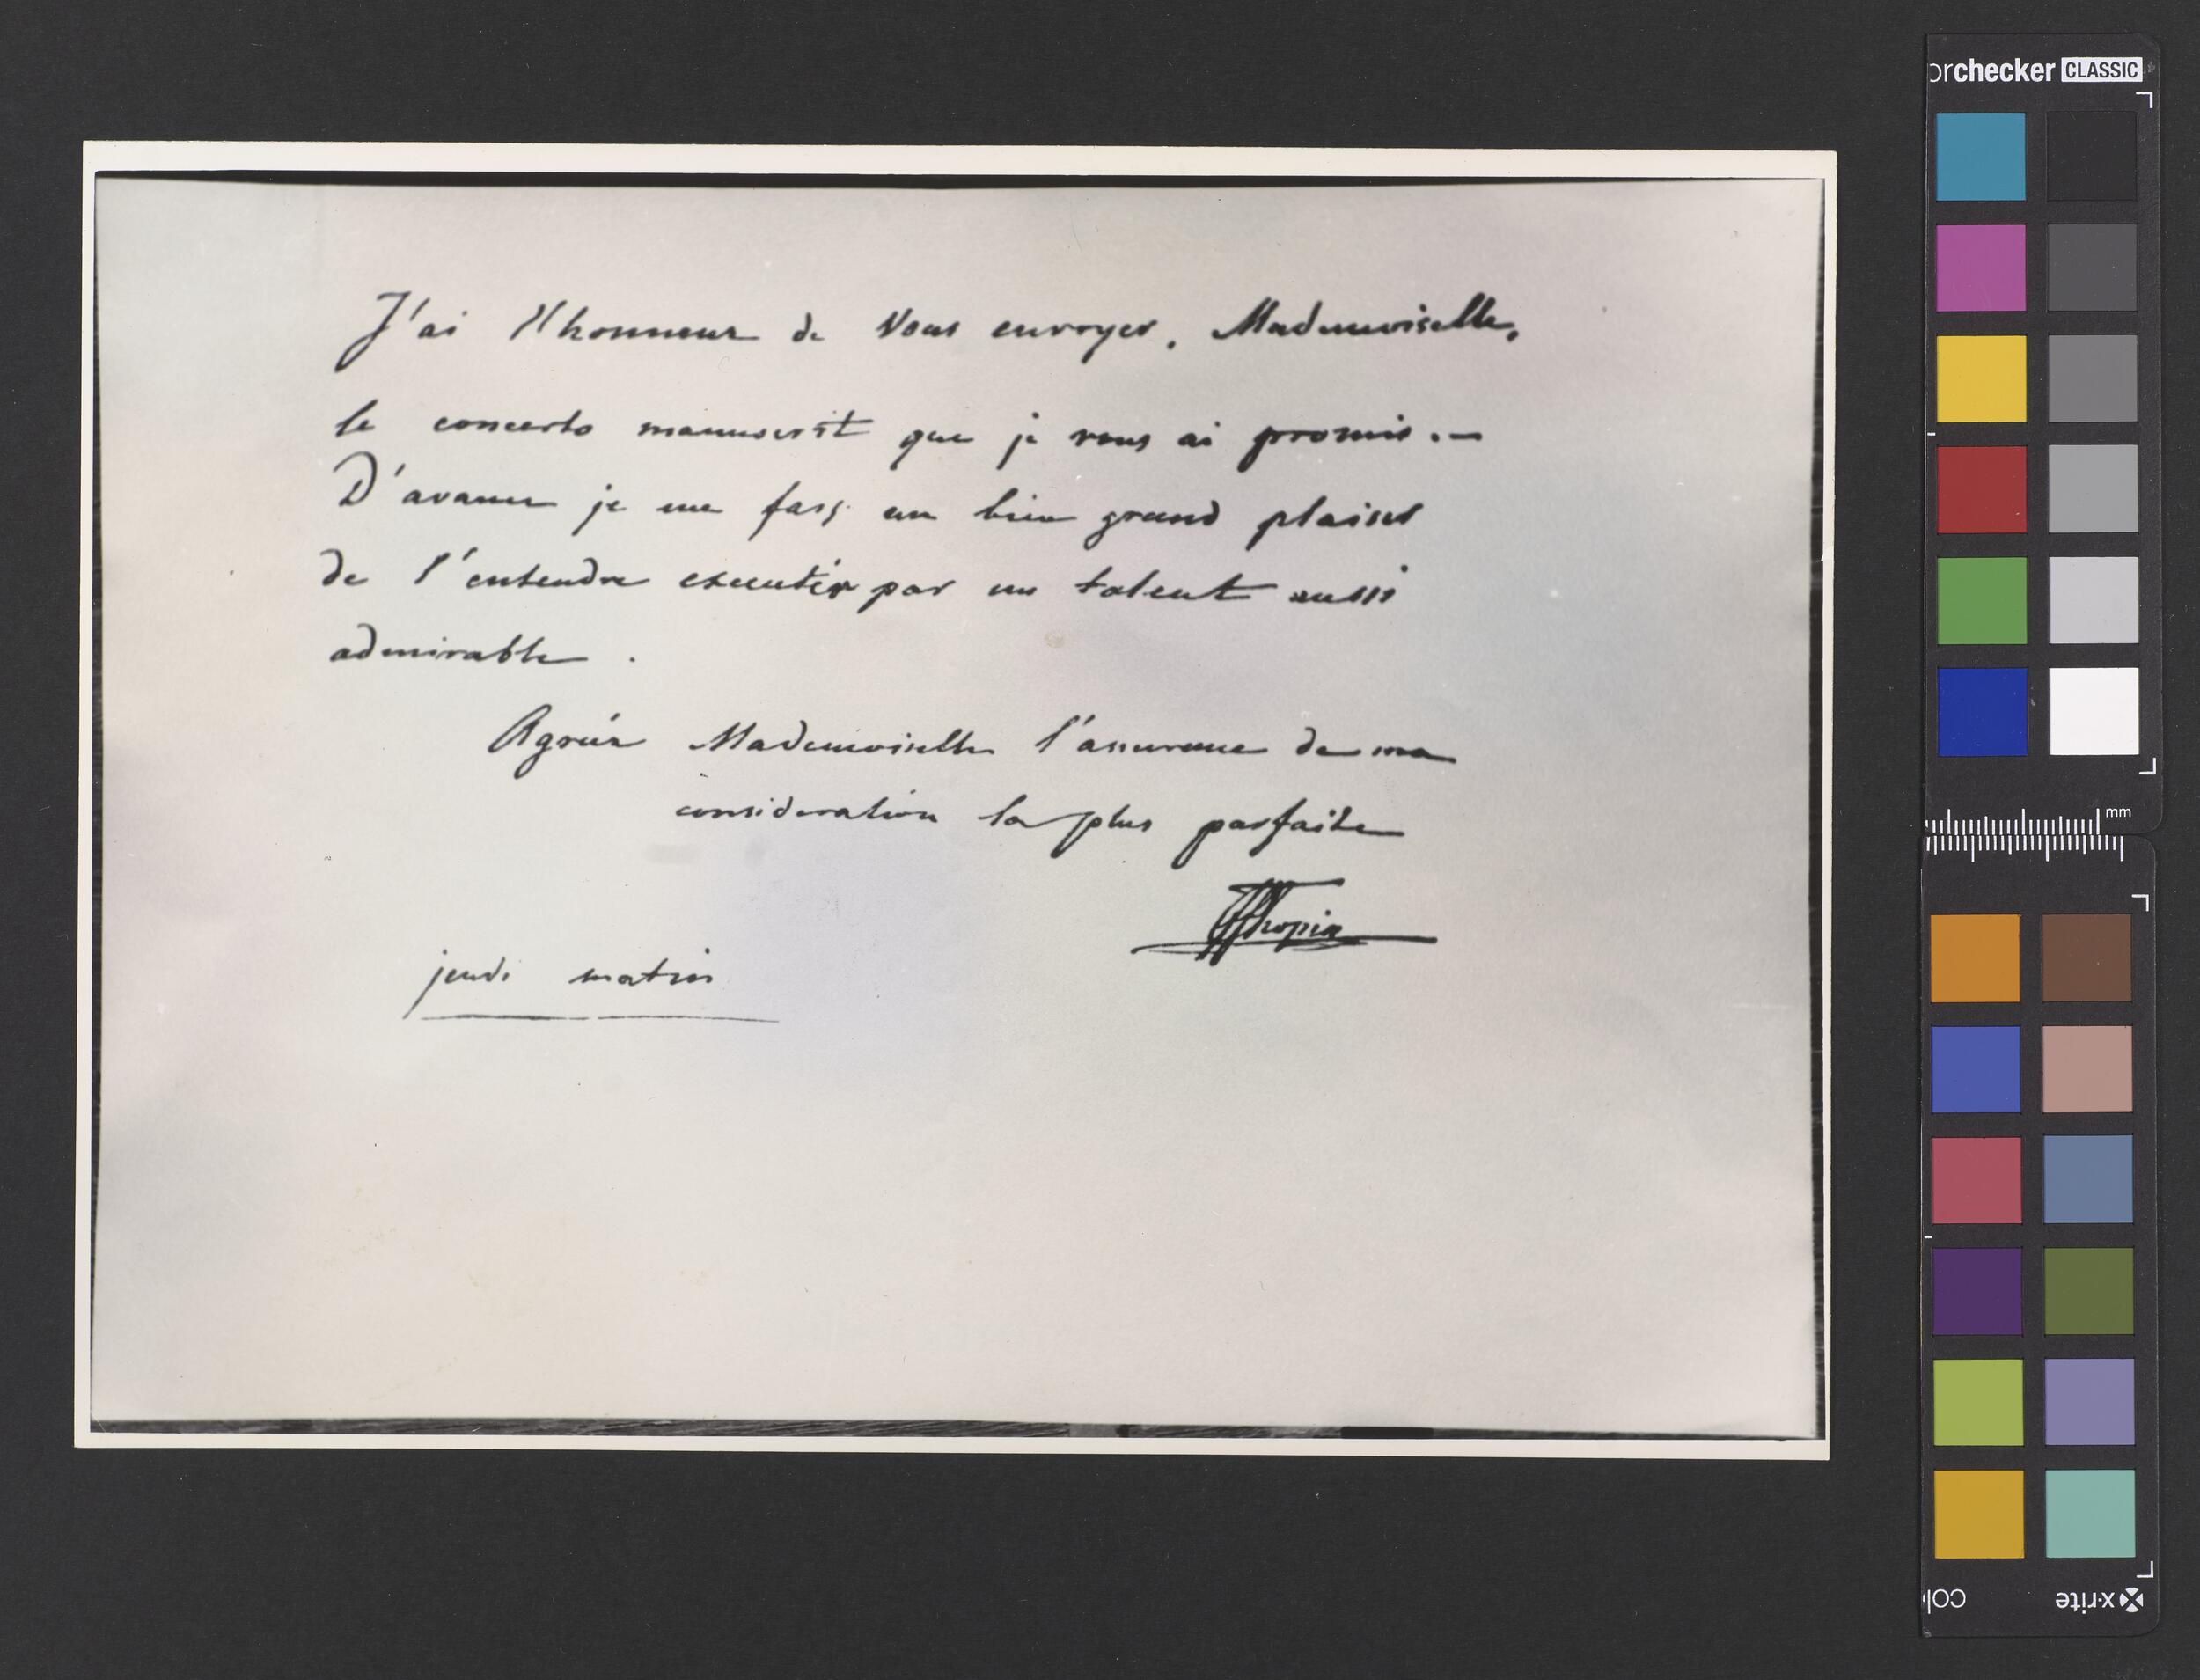 J'ai l'honneur de Vous envoyer, Mademoiselle,
le concerto manuscrit que je vous ai promis. —
D'avance je me fais un bien grand plaisir
de l'entendre executér par un talent aussi
admirable.
Agréez Mademoiselle l'assurance de ma
consideration la plus parfaite
FFChopin
jeudi matin
orchecker CLASSIC
mm
x-rite
colo